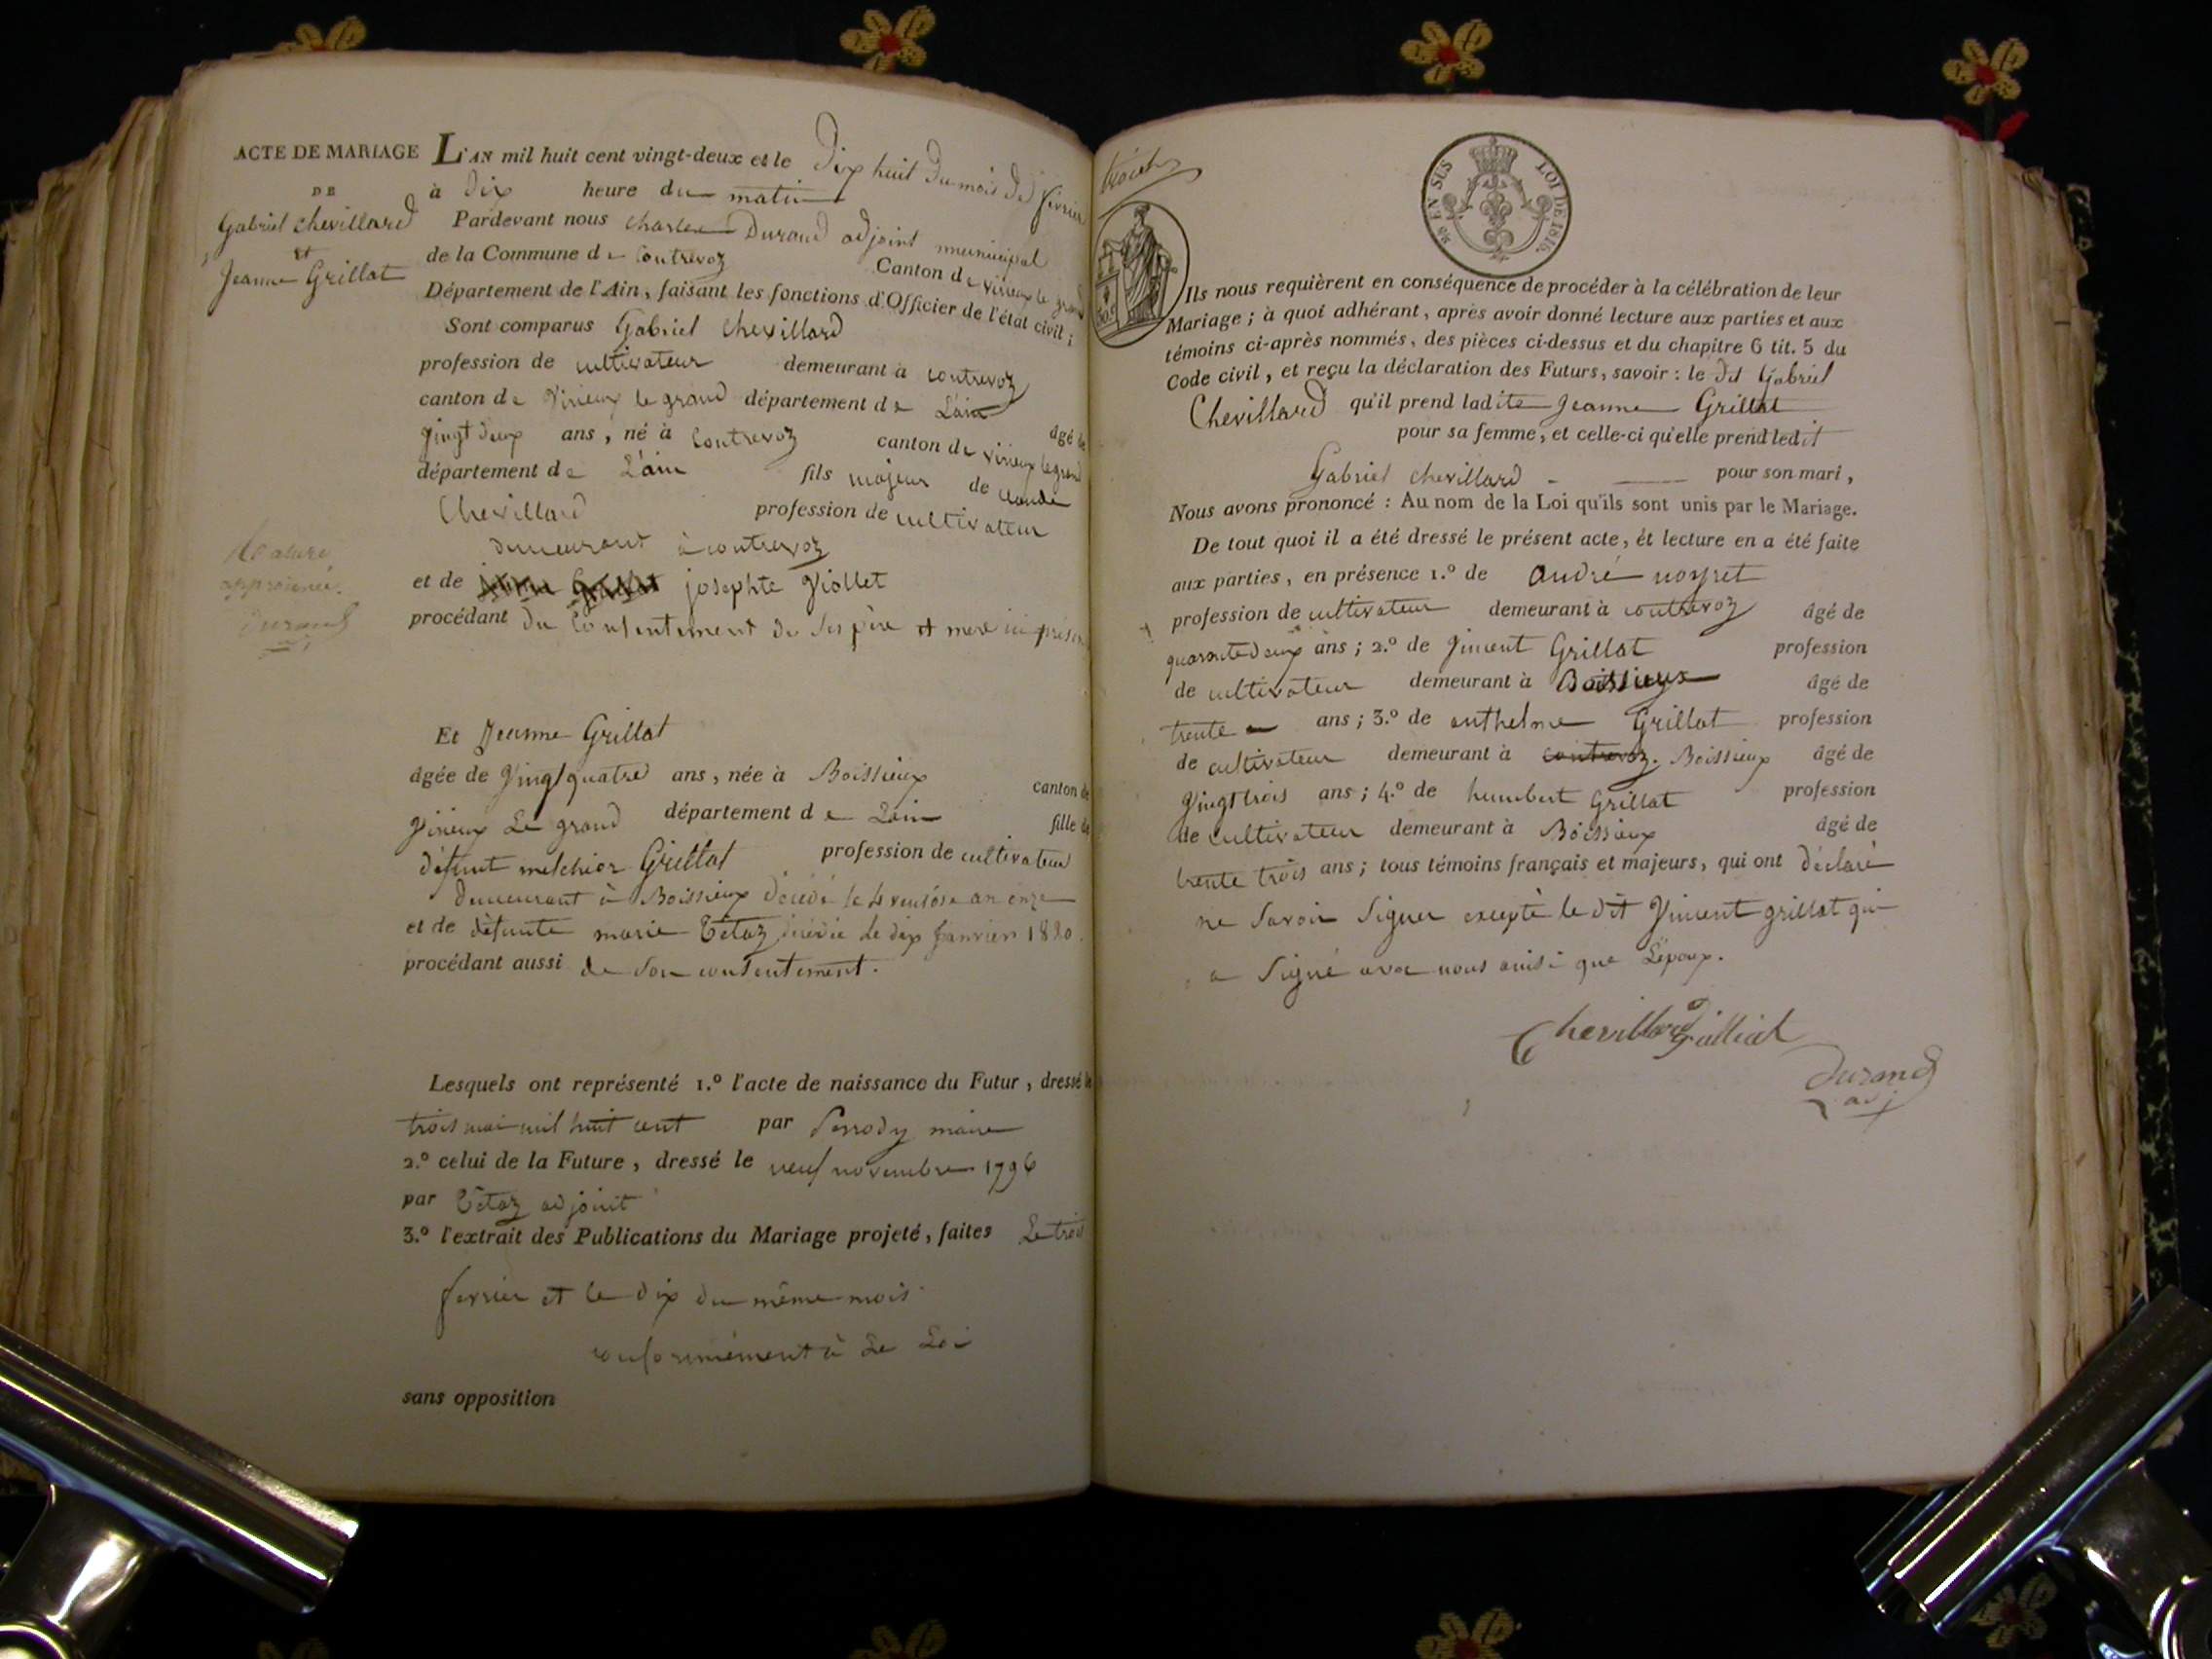 ACTE DE MARIAGE
DE
Gabriel chevillard
et
Jeanne Grillat
L'AN mil huit cent vingt-deux et le Dix huit du mois de février
à dix heure du matin
Pardevant nous charles Durand adjoint municipal
de la Commune de Contrevoz Canton de virieux le grand
Département de l'Ain, faisant les fonctions d'Officier de l'état civil;
Sont comparus Gabriel chevillard
profession de cultivateur demeurant à contrevoz
canton de Virieux le grand département de L'ain âgé de
vingt deux ans, né à Contrevoz canton de virieux le grand
département de L'ain fils majeur de claude
Chevillard profession de cultivateur
demeurant à contrevoz
et de josephte Viollet
procédant du Consentement de ses père et mere ici
approuvée.
Durand
adj
Et Jeanne Grillat
âgée de Vingt quatre ans, née à Boissieux canton de
Virieux Le grand département de L'ain fille de
défunt melchior Grillat profession de cultivateur
demeurant à Boissieux décédé le 4 ventôse an onze
et de défunte marie Tétaz décédée le dix janvier 1820.
procédant aussi de son consentement.
Lesquels ont représenté 1.º l'acte de naissance du Futur, dressé le
trois mai mil huit cent par Perrody maire
2.º celui de la Future, dressé le neuf novembre 1796
par Tétaz adjoint
3.º l'extrait des Publications du Mariage projeté, faites Le trois
fevrier et le dix du même mois.
conformément à La Loi
sans opposition
EN SUS LOI DE 1816.
Ils nous requièrent en conséquence de procéder à la célébration de leur
Mariage; à quoi adhérant, après avoir donné lecture aux parties et aux
témoins ci-après nommés, des pièces ci-dessus et du chapitre 6 tit. 5 du
Code civil, et reçu la déclaration des Futurs, savoir: le dit Gabriel
Chevillard qu'il prend ladite Jeanne Grillat
pour sa femme, et celle-ci qu'elle prend ledit
Gabriel chevillard pour son mari,
Nous avons prononcé: Au nom de la Loi qu'ils sont unis par le Mariage.
De tout quoi il a été dressé le présent acte, et lecture en a été faite
aux parties, en présence 1.º de André noyret
profession de cultivateur demeurant à contrevoz âgé de
quarante deux ans; 2.º de Vincent Grillat profession
de cultivateur demeurant à Boissieux âgé de
trente ans; 3.º de anthelme Grillat profession
de cultivateur demeurant à contrevoz. Boissieux âgé de
Vingt trois ans; 4.º de humbert Grillat profession
de cultivateur demeurant à Boissieux âgé de
trente trois ans; tous témoins français et majeurs, qui ont déclaré
ne savoir signer excepté le dit Vincent grillat qui
a signé avec nous ainsi que L'époux.
Chevillard Grilliat
Durand
adj